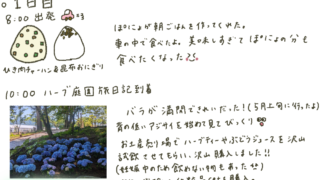 ○1日目
8:00 出発 ×3
ぽにょが朝ごはんを作ってくれた。
車の中で食べたよ。美味しすぎてぽにょの分も
食べたくなった
ひき肉チャーハン 昆布おにぎり
10:00 ハーブ庭園旅日記到着
バラが満開できれいだった!(5月上旬に行ったよ)
背の低いアジサイを始めて見てびっくり
お土産売り場でハーブティーやぶどうジュースを沢山
試飲させてもらい、沢山購入しました!!
(妊娠中のため飲めない物もあったせ)